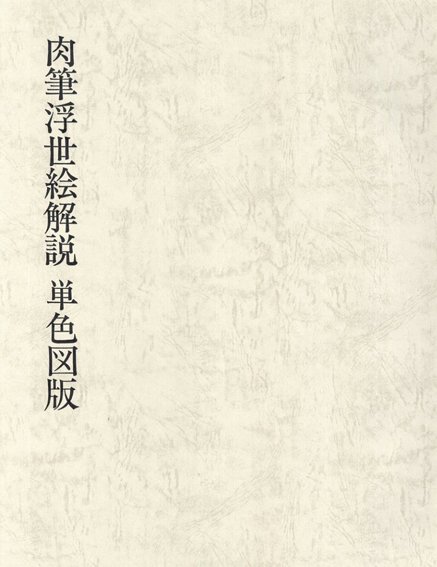 肉筆浮世絵解説 単色図版